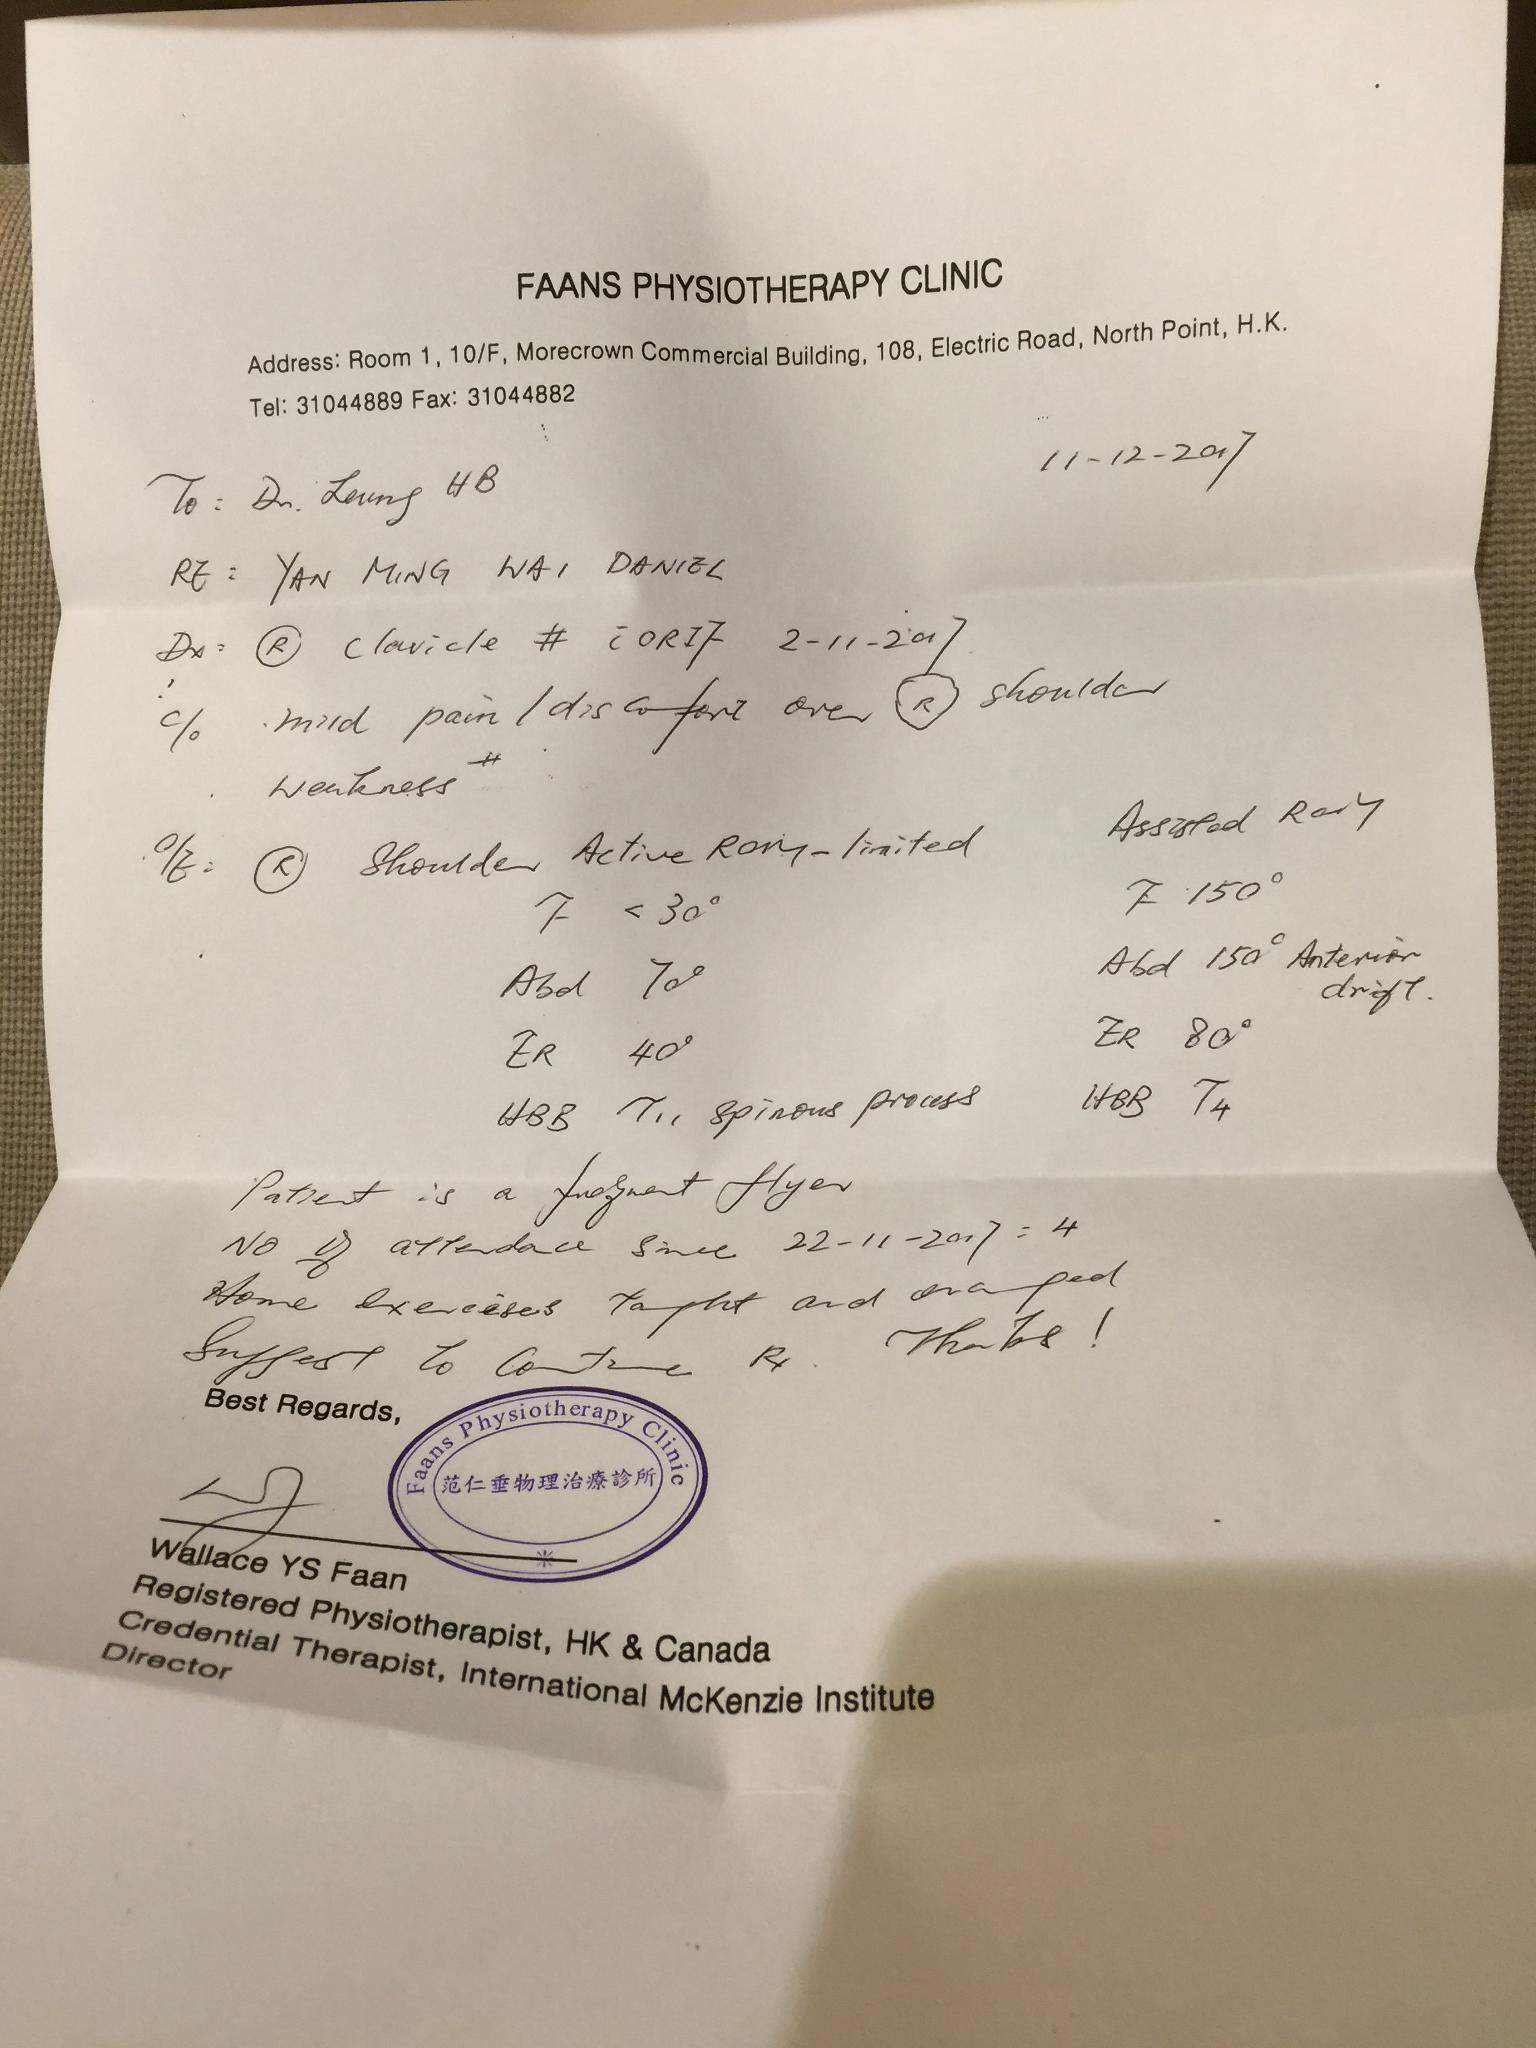 FAANS PHYSIOTHERAPY CLINIC
Address: Room 1, 10/F, Morecrown Commercial Building, 108, Electric Road, North Point, H.K.
Tel: 31044889 Fax: 31044882
11-12-2017
To: Dr. Leung HB
RE: YAN MING WAI DANIEL
Dx: Ⓡ clavicle # c̄ ORIF 2-11-2017
c/o mild pain / discomfort over Ⓡ shoulder
weakness #
O/E: Ⓡ Shoulder Active ROM - limited Assisted ROM
F < 30° F 150°
Abd 70° Abd 150° Anterior drift.
ER 40° ER 80°
HBB T11 spinous process HBB T4
Patient is a frequent flyer
NO of attendace since 22-11-2017 = 4
Home exercises taught and
Suggest to continue Rx. Thanks!
Best Regards,
Faans Physiotherapy Clinic
范仁垂物理治療診所
Wallace YS Faan
Registered Physiotherapist, HK & Canada
Credential Therapist, International McKenzie Institute
Director